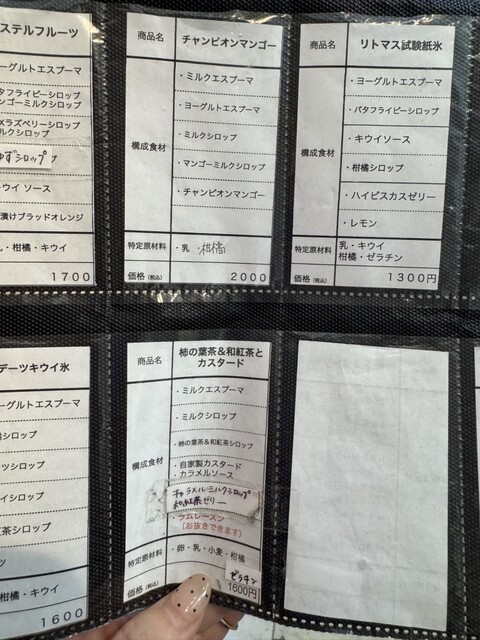 ステルフルーツ
ーグルトエスプーマ
タフライピーシロップ
ンゴーミルクシロップ
Xラズベリーシロップ
ルクシロップ
ゆずシロップ
ウイ ソース
漬けブラッドオレンジ
乳・柑橘・キウイ
1700
商品名
チャンピオンマンゴー
構成食材
・ミルクエスプーマ
・ヨーグルトエスプーマ
・ミルクシロップ
・マンゴーミルクシロップ
・チャンピオンマンゴー
特定原材料
・乳 ・柑橘
価格(税込)
2000
商品名
リトマス試験紙氷
構成食材
・ヨーグルトエスプーマ
・バタフライピーシロップ
・キウイソース
・柑橘シロップ
・ハイビスカスゼリー
・レモン
特定原材料
乳・キウイ
柑橘・ゼラチン
価格(税込)
1300円
デーツキウイ氷
ーグルトエスプーマ
橘シロップ
ーツシロップ
イシロップ
茶シロップ
ツ
・柑橘・キウイ
1600
商品名
柿の葉茶&和紅茶と
カスタード
構成食材
・ミルクエスプーマ
・ミルクシロップ
・柿の葉茶&和紅茶シロップ
・自家製カスタード
・カラメルソース
キャラメルミルクシロップ
和紅茶ゼリー
・ラムレーズン
(お抜きできます)
特定原材料
・卵・乳・小麦・柑橘
ゼラチン
価格(税込)
1600円